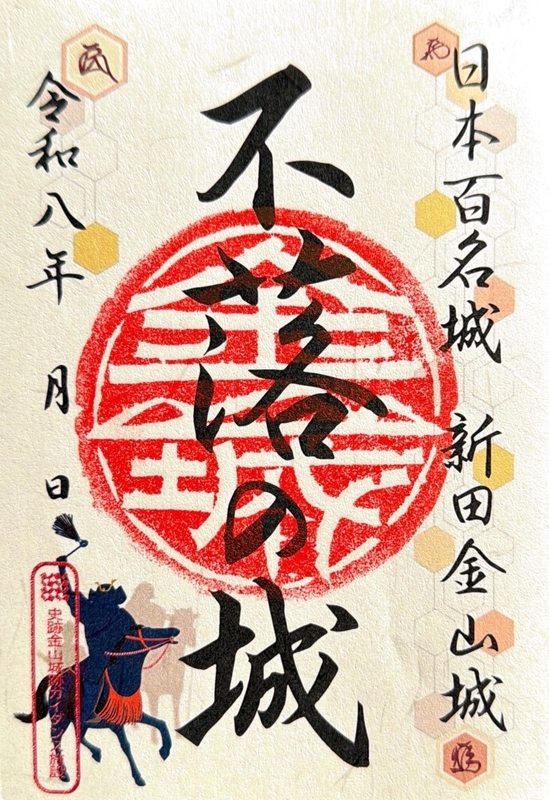 日本百名城 新田金山城
不落の城
令和八年 月 日
史跡金山城跡ガイダンス施設